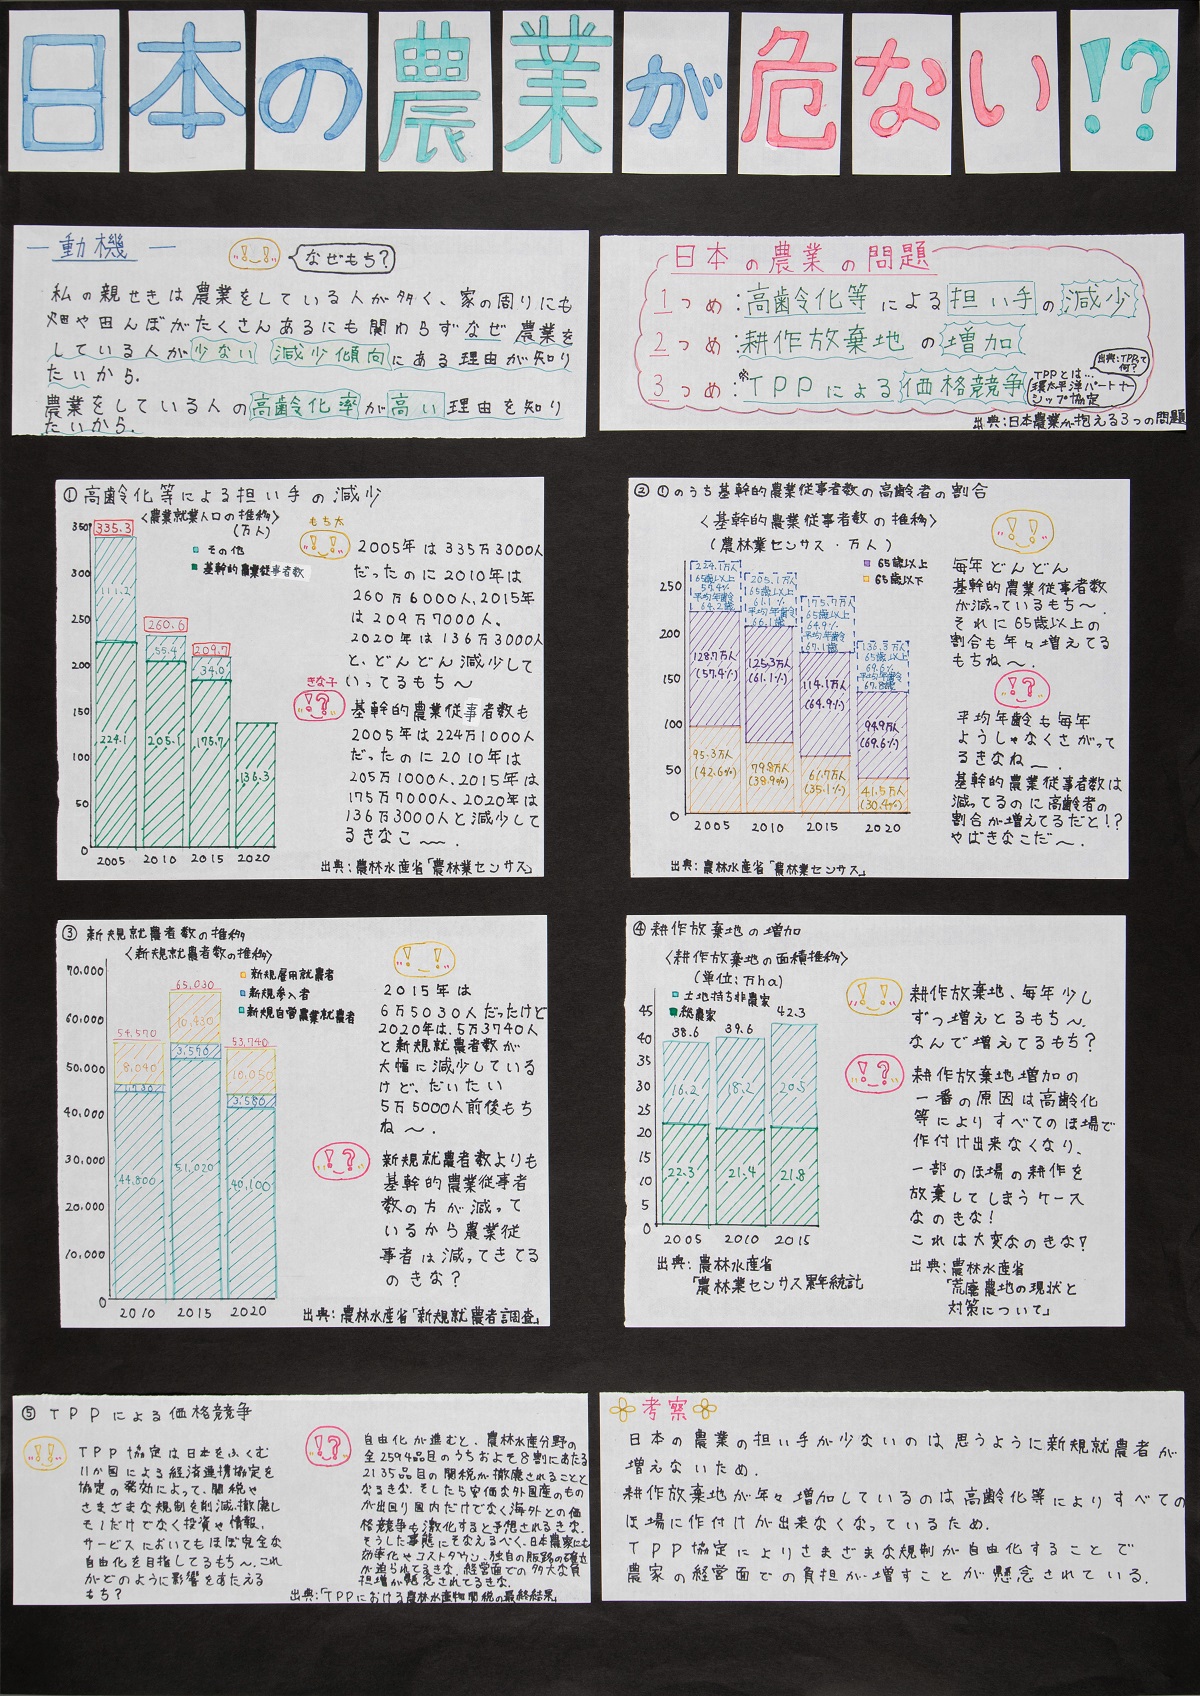 日本の農業が危ない!?
— 動機 —
なぜもち?
私の親せきは農業をしている人が多く、家の周りにも
畑や田んぼがたくさんあるにも関わらずなぜ農業を
している人が少ない 減少傾向にある理由が知り
たいから.
農業をしている人の高齢化率が高い理由を知り
たいから.
日本の農業の問題
1つめ:高齢化等による担い手の減少
2つめ:耕作放棄地の増加
3つめ:※TPPによる価格競争
出典:TPPって
何?
TPPとは…
環太平洋パートナー
シップ協定
出典:日本農業が抱える3つの問題
①高齢化等による担い手の減少
〈農業就業人口の推移〉
(万人)
その他
基幹的農業従事者数
350
300
250
200
150
100
50
0
335.3
111.2
224.1
260.6
55.4
205.1
209.7
34.0
175.7
136.3
2005 2010 2015 2020
もち太
2005年は335万3000人
だったのに2010年は
260万6000人、2015年
は209万7000人、
2020年は136万3000人
と、どんどん減少して
いってるもち〜
きな子
基幹的農業従事者数も
2005年は224万1000人
だったのに2010年は
205万1000人、2015年は
175万7000人、2020年は
136万3000人と減少して
るきなこ〜.
出典:農林水産省「農林業センサス」
②①のうち基幹的農業従事者数の高齢者の割合
〈基幹的農業従事者数の推移〉
(農林業センサス・万人)
65歳以上
65歳以下
250
200
150
100
50
0
224.1万人
65歳以上
57.4%
平均年齢
64.2歳
128.7万人
(57.4%)
95.3万人
(42.6%)
205.1万人
65歳以上
61.1%
平均年齢
66.1歳
125.3万人
(61.1%)
79.8万人
(38.9%)
175.7万人
65歳以上
64.9%
平均年齢
67.1歳
114.1万人
(64.9%)
61.7万人
(35.1%)
136.3万人
65歳以上
69.6%
平均年齢
67.8歳
94.9万人
(69.6%)
41.5万人
(30.4%)
2005 2010 2015 2020
毎年どんどん
基幹的農業従事者数
が減っているもち〜.
それに65歳以上の
割合も年々増えてる
もちね〜.
平均年齢も毎年
ようしゃなくさがって
るきなね〜.
基幹的農業従事者数は
減ってるのに高齢者の
割合が増えてるだと!?
やばきなこだ〜.
出典:農林水産省「農林業センサス」
③新規就農者数の推移
〈新規就農者数の推移〉
新規雇用就農者
新規参入者
新規自営農業就農者
70,000
60,000
50,000
40,000
30,000
20,000
10,000
0
54,570
8,040
1,730
44,800
65,030
10,430
3,570
51,020
53,740
10,050
3,580
40,100
2010 2015 2020
2015年は
6万5030人だったけど
2020年は、5万3740人
と新規就農者数が
大幅に減少している
けど、だいたい
5万5000人前後もち
ね〜.
新規就農者数よりも
基幹的農業従事者
数の方が減って
いるから農業従
事者は減ってきてる
のきな?
出典:農林水産省「新規就農者調査」
④耕作放棄地の増加
〈耕作放棄地の面積推移〉
(単位:万ha)
土地持ち非農家
総農家
45
40
35
30
25
20
15
10
5
0
38.6
16.2
22.3
39.6
18.2
21.4
42.3
20.5
21.8
2005 2010 2015
耕作放棄地、毎年少し
ずつ増えとるもち〜.
なんで増えてるもち?
耕作放棄地増加の
一番の原因は高齢化
等によりすべてのほ場で
作付け出来なくなり、
一部のほ場の耕作を
放棄してしまうケース
なのきな!
これは大変なのきな!
出典:農林水産省
「農林業センサス累年統計
出典:農林水産省
「荒廃農地の現状と
対策について」
⑤TPPによる価格競争
TPP協定は日本をふくむ
11か国による経済連携協定を
協定の発効によって、関税や
さまざまな規制を削減・撤廃し
モノだけでなく投資や情報、
サービスにおいてもほぼ完全な
自由化を目指してるもち〜.これ
がどのように影響をあたえる
もち?
自由化が進むと、農林水産分野の
全2594品目のうちおよそ8割にあたる
2135品目の関税が撤廃されることと
なるきな.そしたら安価な外国産のもの
が出回り国内だけでなく海外との価
格競争も激化すると予想されるきな.
そうした事態にそなえるべく、日本農家にも
効率化やコストダウン、独自の販路の確立
が迫られてるきな.経営面での多大な負
担増が懸念されてるきな.
出典:「TPPにおける農林水産物関税の最終結果」
考察
日本の農業の担い手が少ないのは思うように新規就農者が
増えないため.
耕作放棄地が年々増加しているのは高齢化等によりすべての
ほ場に作付けが出来なくなっているため.
TPP協定によりさまざまな規制が自由化することで
農家の経営面での負担が増すことが懸念されている.